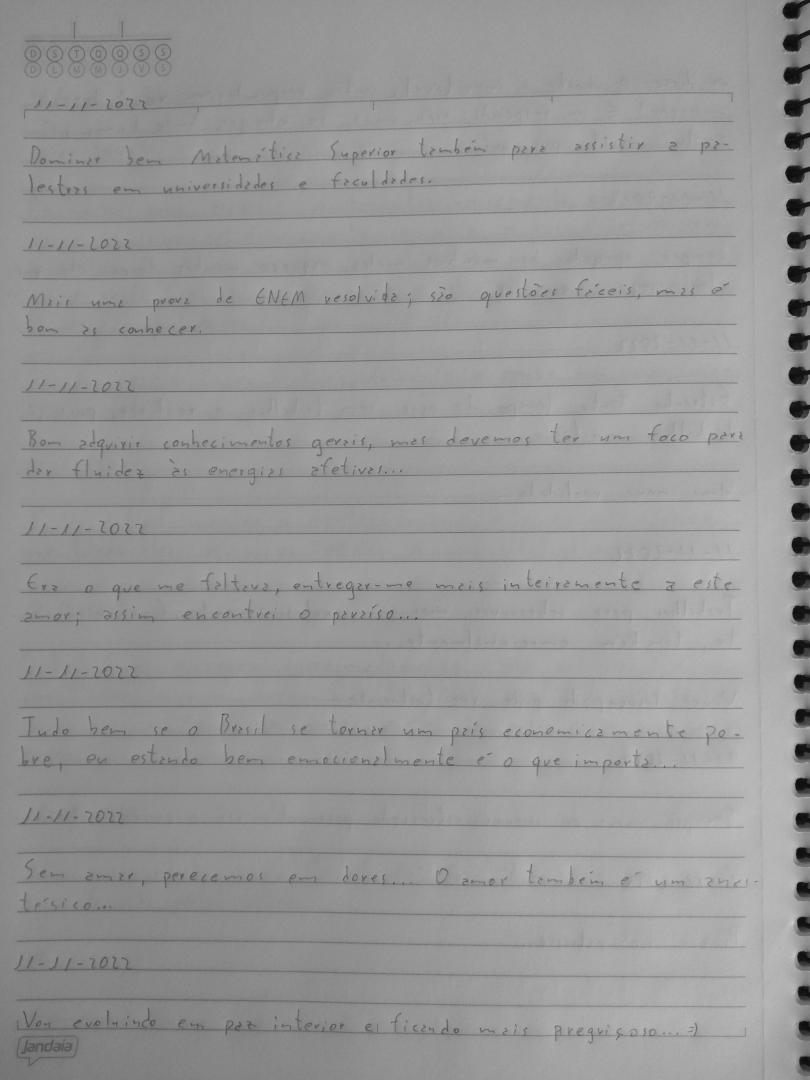 D S T Q Q S S
D L M M J V S
11-11-2022
Dominar bem Matemática Superior também para assistir a pa-
lestras em universidades e faculdades.
11-11-2022
Mais uma prova de ENEM resolvida; são questões fáceis, mas é
bom as conhecer.
11-11-2022
Bom adquirir conhecimentos gerais, mas devemos ter um foco para
dar fluidez às energias afetivas...
11-11-2022
Era o que me faltava, entregar-me mais inteiramente a este
amor; assim encontrei o paraíso...
11-11-2022
Tudo bem se o Brasil se tornar um país economicamente po-
bre, eu estando bem emocionalmente é o que importa...
11-11-2022
Sem amar, perecemos em dores... O amor também é um anes-
tésico...
11-11-2022
Vou evoluindo em paz interior e ficando mais preguiçoso... =)
Jandaia